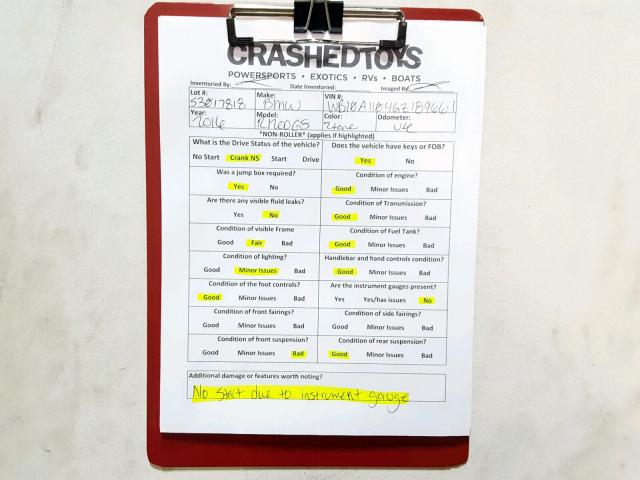 CRASHEDTOYS
POWERSPORTS • EXOTICS • RVs • BOATS
Inventoried By: Date Inventoried: Imaged By:
Lot #: Make: VIN #:
53017818 BMW
Year: Model: Color: Odometer:
2016 R1200GS 2tone
*NON-ROLLER* (applies if highlighted)
What is the Drive Status of the vehicle? Does the vehicle have keys or FOB?
No Start Crank NS Start Drive Yes No
Was a jump box required? Condition of engine?
Yes No Good Minor Issues Bad
Are there any visible fluid leaks? Condition of Transmission?
Yes No Good Minor Issues Bad
Condition of visible Frame Condition of Fuel Tank?
Good Fair Bad Good Minor Issues Bad
Condition of lighting? Handlebar and hand controls condition?
Good Minor Issues Bad Good Minor Issues Bad
Condition of the foot controls? Are the instrument gauges present?
Good Minor Issues Bad Yes Yes/has issues No
Condition of front fairings? Condition of side fairings?
Good Minor Issues Bad Good Minor Issues Bad
Condition of front suspension? Condition of rear suspension?
Good Minor Issues Bad Good Minor Issues Bad
Additional damage or features worth noting?
No start due to instrument gauge